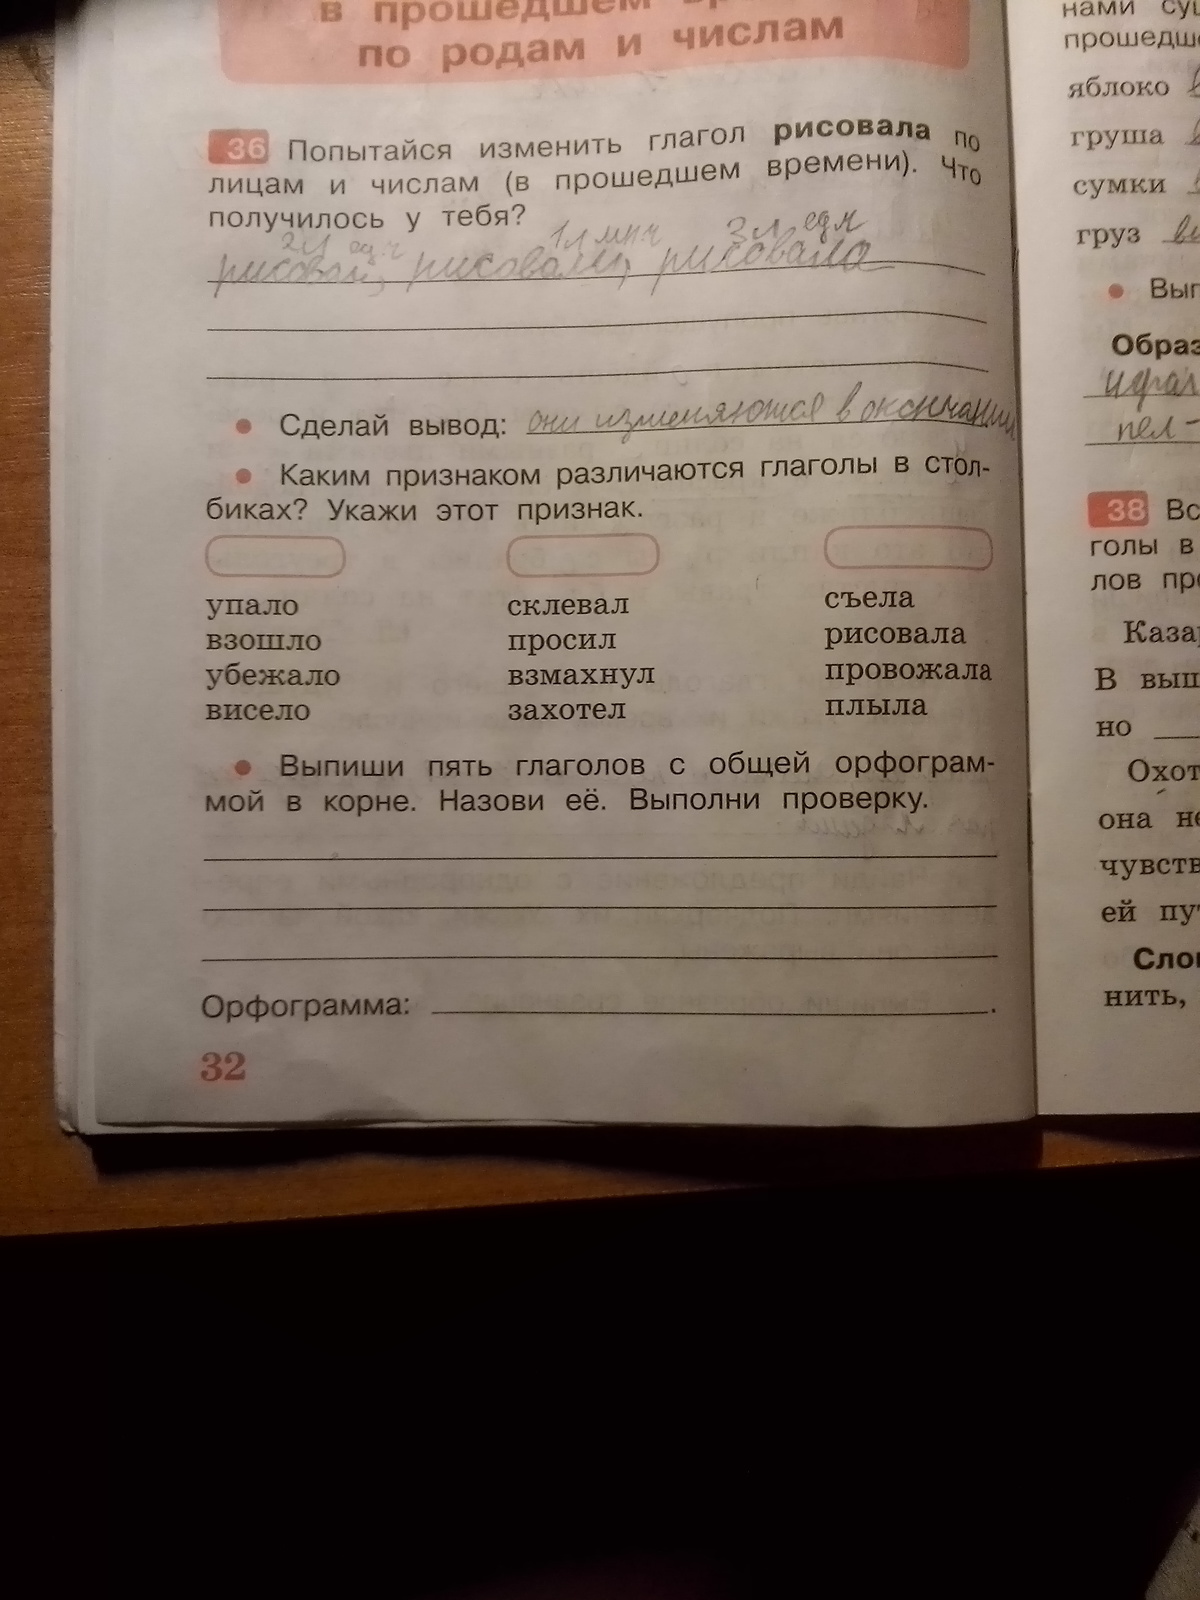 в прошедшем
по родам и числам
36 Попытайся изменить глагол рисовала по
лицам и числам (в прошедшем времени). Что
получилось у тебя?
2л ед.ч 1л мн.ч 3л ед.ч
рисовал, рисовали, рисовала
• Сделай вывод: они изменяются в окончании
• Каким признаком различаются глаголы в стол-
биках? Укажи этот признак.
упало склевал съела
взошло просил рисовала
убежало взмахнул провожала
висело захотел плыла
• Выпиши пять глаголов с общей орфограм-
мой в корне. Назови её. Выполни проверку.
Орфограмма: .
32
нами
прошедш
яблоко
груша
сумки
груз
• Вып
Образ
играл
пел -
38 Вс
голы в
лов про
Казар
В выш
но
Охот
она не
чувств
ей пут
Слов
нить,